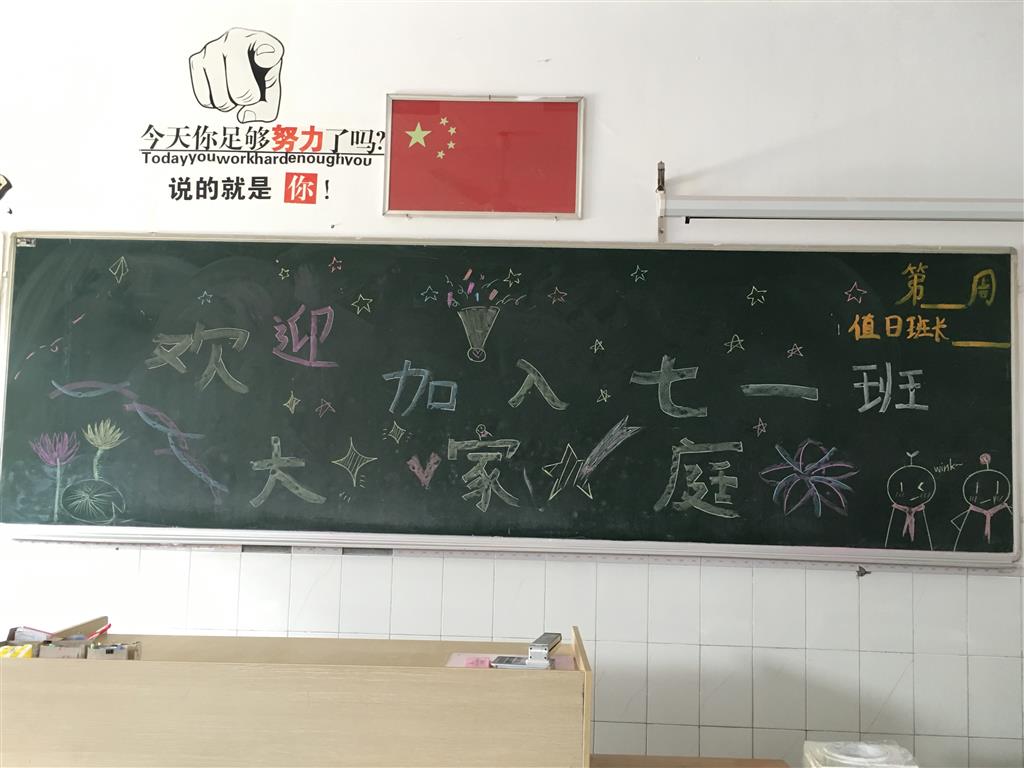 今天你足够努力了吗?
Todayyouworkhardenoughyou
说的就是 你!
第__周
值日班长___
欢迎
加入七一班
大家庭
wink~